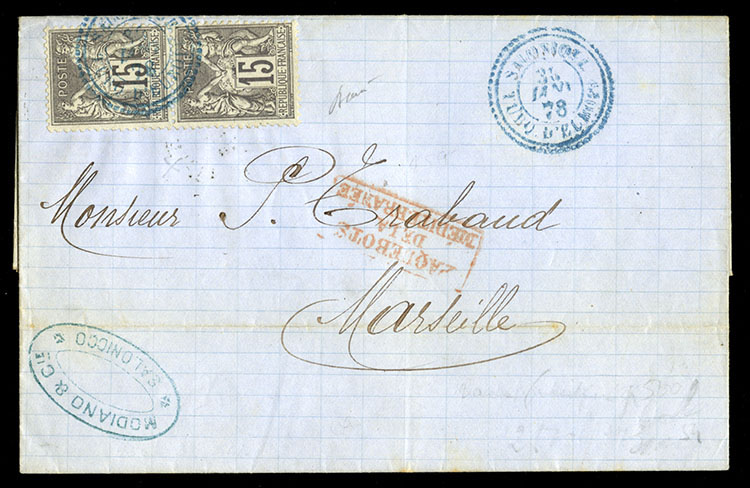 POSTE
15
REPUBLIQUE FRANÇAISE
POSTE
15
REPUBLIQUE FRANÇAISE
SALONIQUE
78
TURQUIE D'EUROPE
Monsieur P. Trabaud
PAQUEBOTS
DE LA
MÉDITERRANÉE
Marseille
MODIANO & CIE
SALONICCO